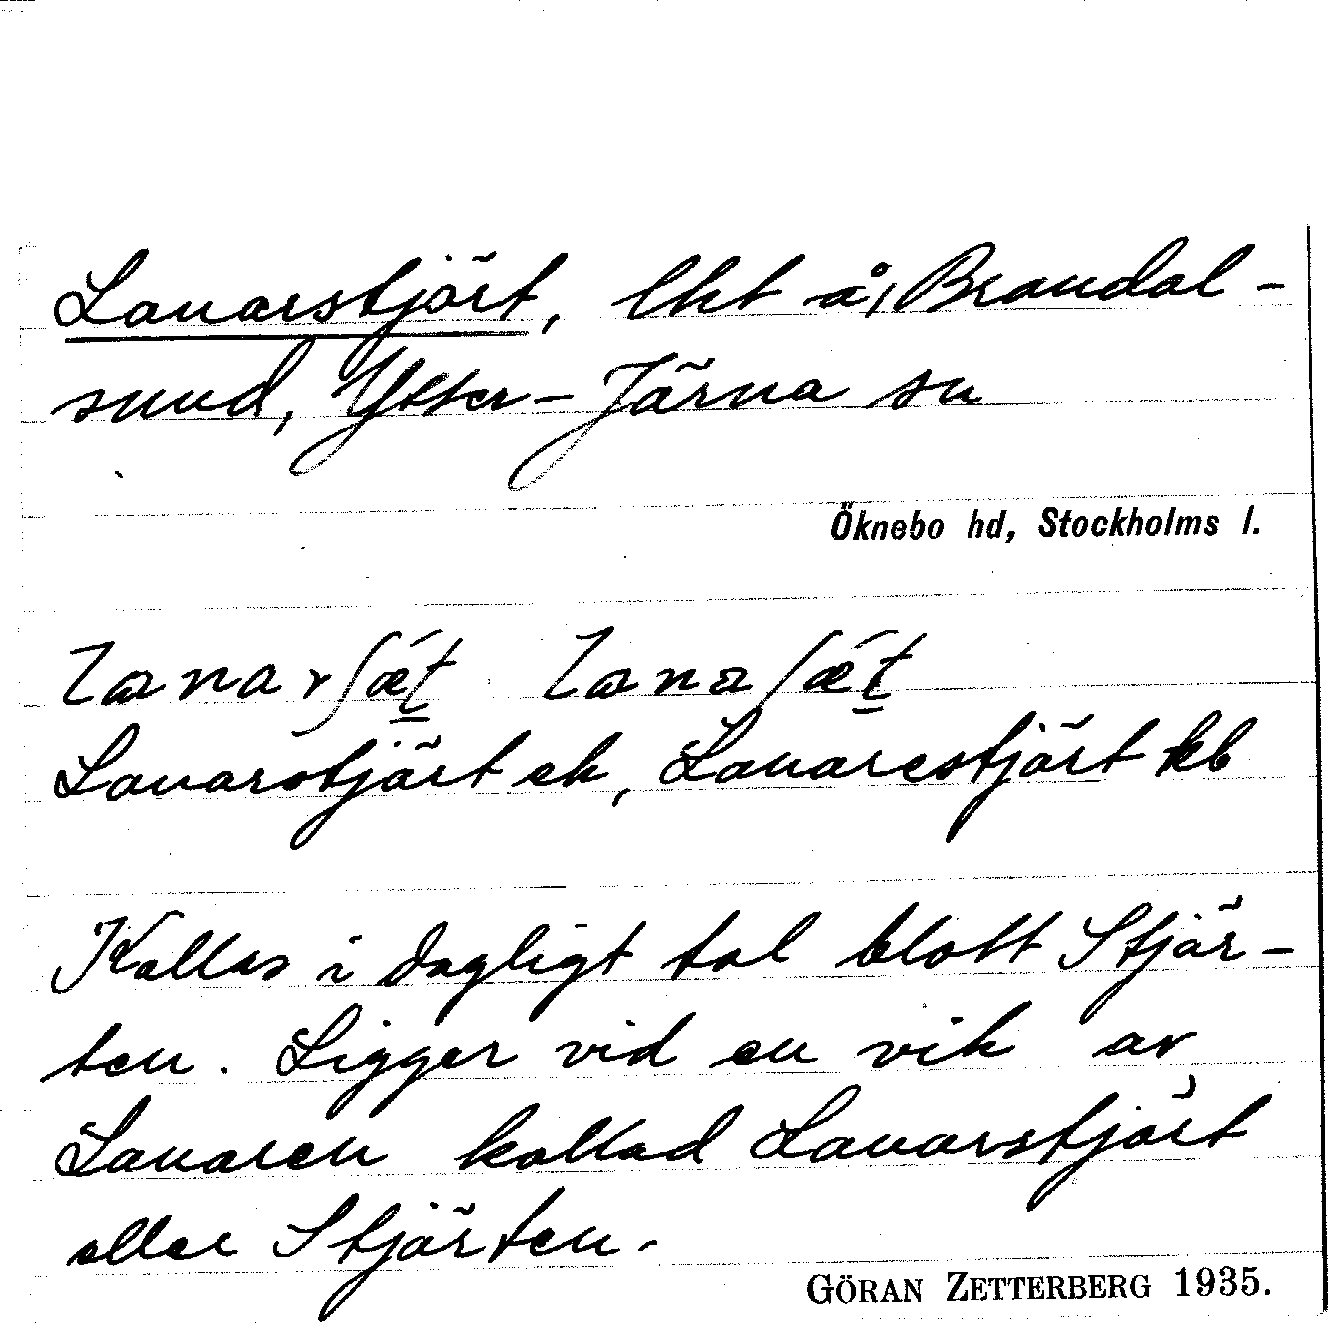 Lanarstjärt, lht å, Brandal-
sund, Ytter-Järna sn
Öknebo hd, Stockholms l.
Lanarstjärt ek, Lanarestjärt kb
Kallas i dagligt tal blott Stjär-
ten. Ligger vid en vik av
Lanaren kallad Lanarstjärt
eller Stjärten.
GÖRAN ZETTERBERG 1935.